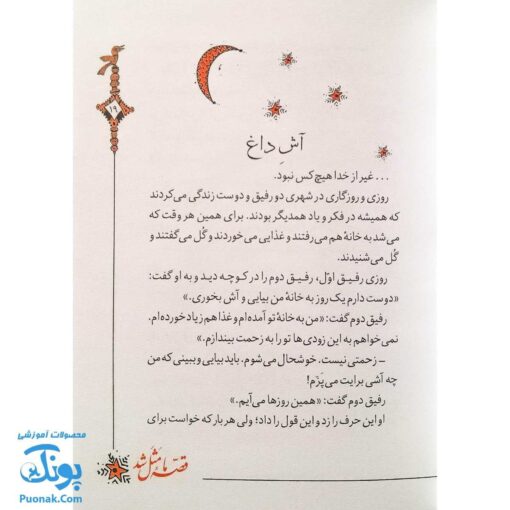 ۱۹
آشِ داغ
... غیر از خدا هیچ‌کس نبود.
روزی و روزگاری در شهری دو رفیق و دوست زندگی می‌کردند
که همیشه در فکر و یاد همدیگر بودند. برای همین هر وقت که
می‌شد به خانهٔ هم می‌رفتند و غذایی می‌خوردند و گُل می‌گفتند و
گُل می‌شنیدند.
روزی رفیق اوّل، رفیق دوم را در کوچه دید و به او گفت:
«دوست دارم یک روز به خانهٔ من بیایی و آش بخوری.»
رفیق دوم گفت: «من به خانهٔ تو آمده‌ام و غذا هم زیاد خورده‌ام.
نمی‌خواهم به این زودی‌ها تو را به زحمت بیندازم.»
– زحمتی نیست. خوشحال می‌شوم. باید بیایی و ببینی که من
چه آشی برایت می‌پَزَم!
رفیق دوم گفت: «همین روزها می‌آیم.»
او این حرف را زد و این قول را داد؛ ولی هر بار که خواست برای
قصه ما مَثَل شد
محصولات آموزشی
پونک
Puonak.Com